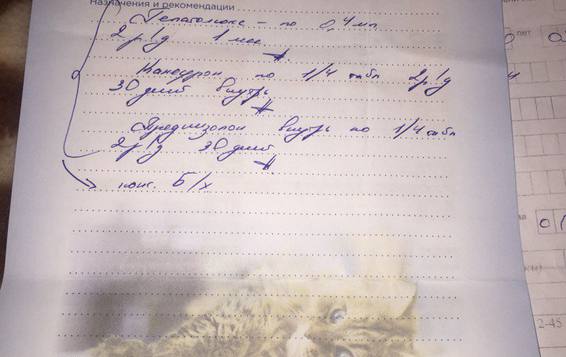 Назначения и рекомендации
Гепатолюкс - по 0,4 мл
2 р/д 1 мес
по 1/4 табл 2р/д
30 дней внутрь
Преднизолон внутрь по 1/4 табл
2р/д 30 дней
конс. Б/х
2-45